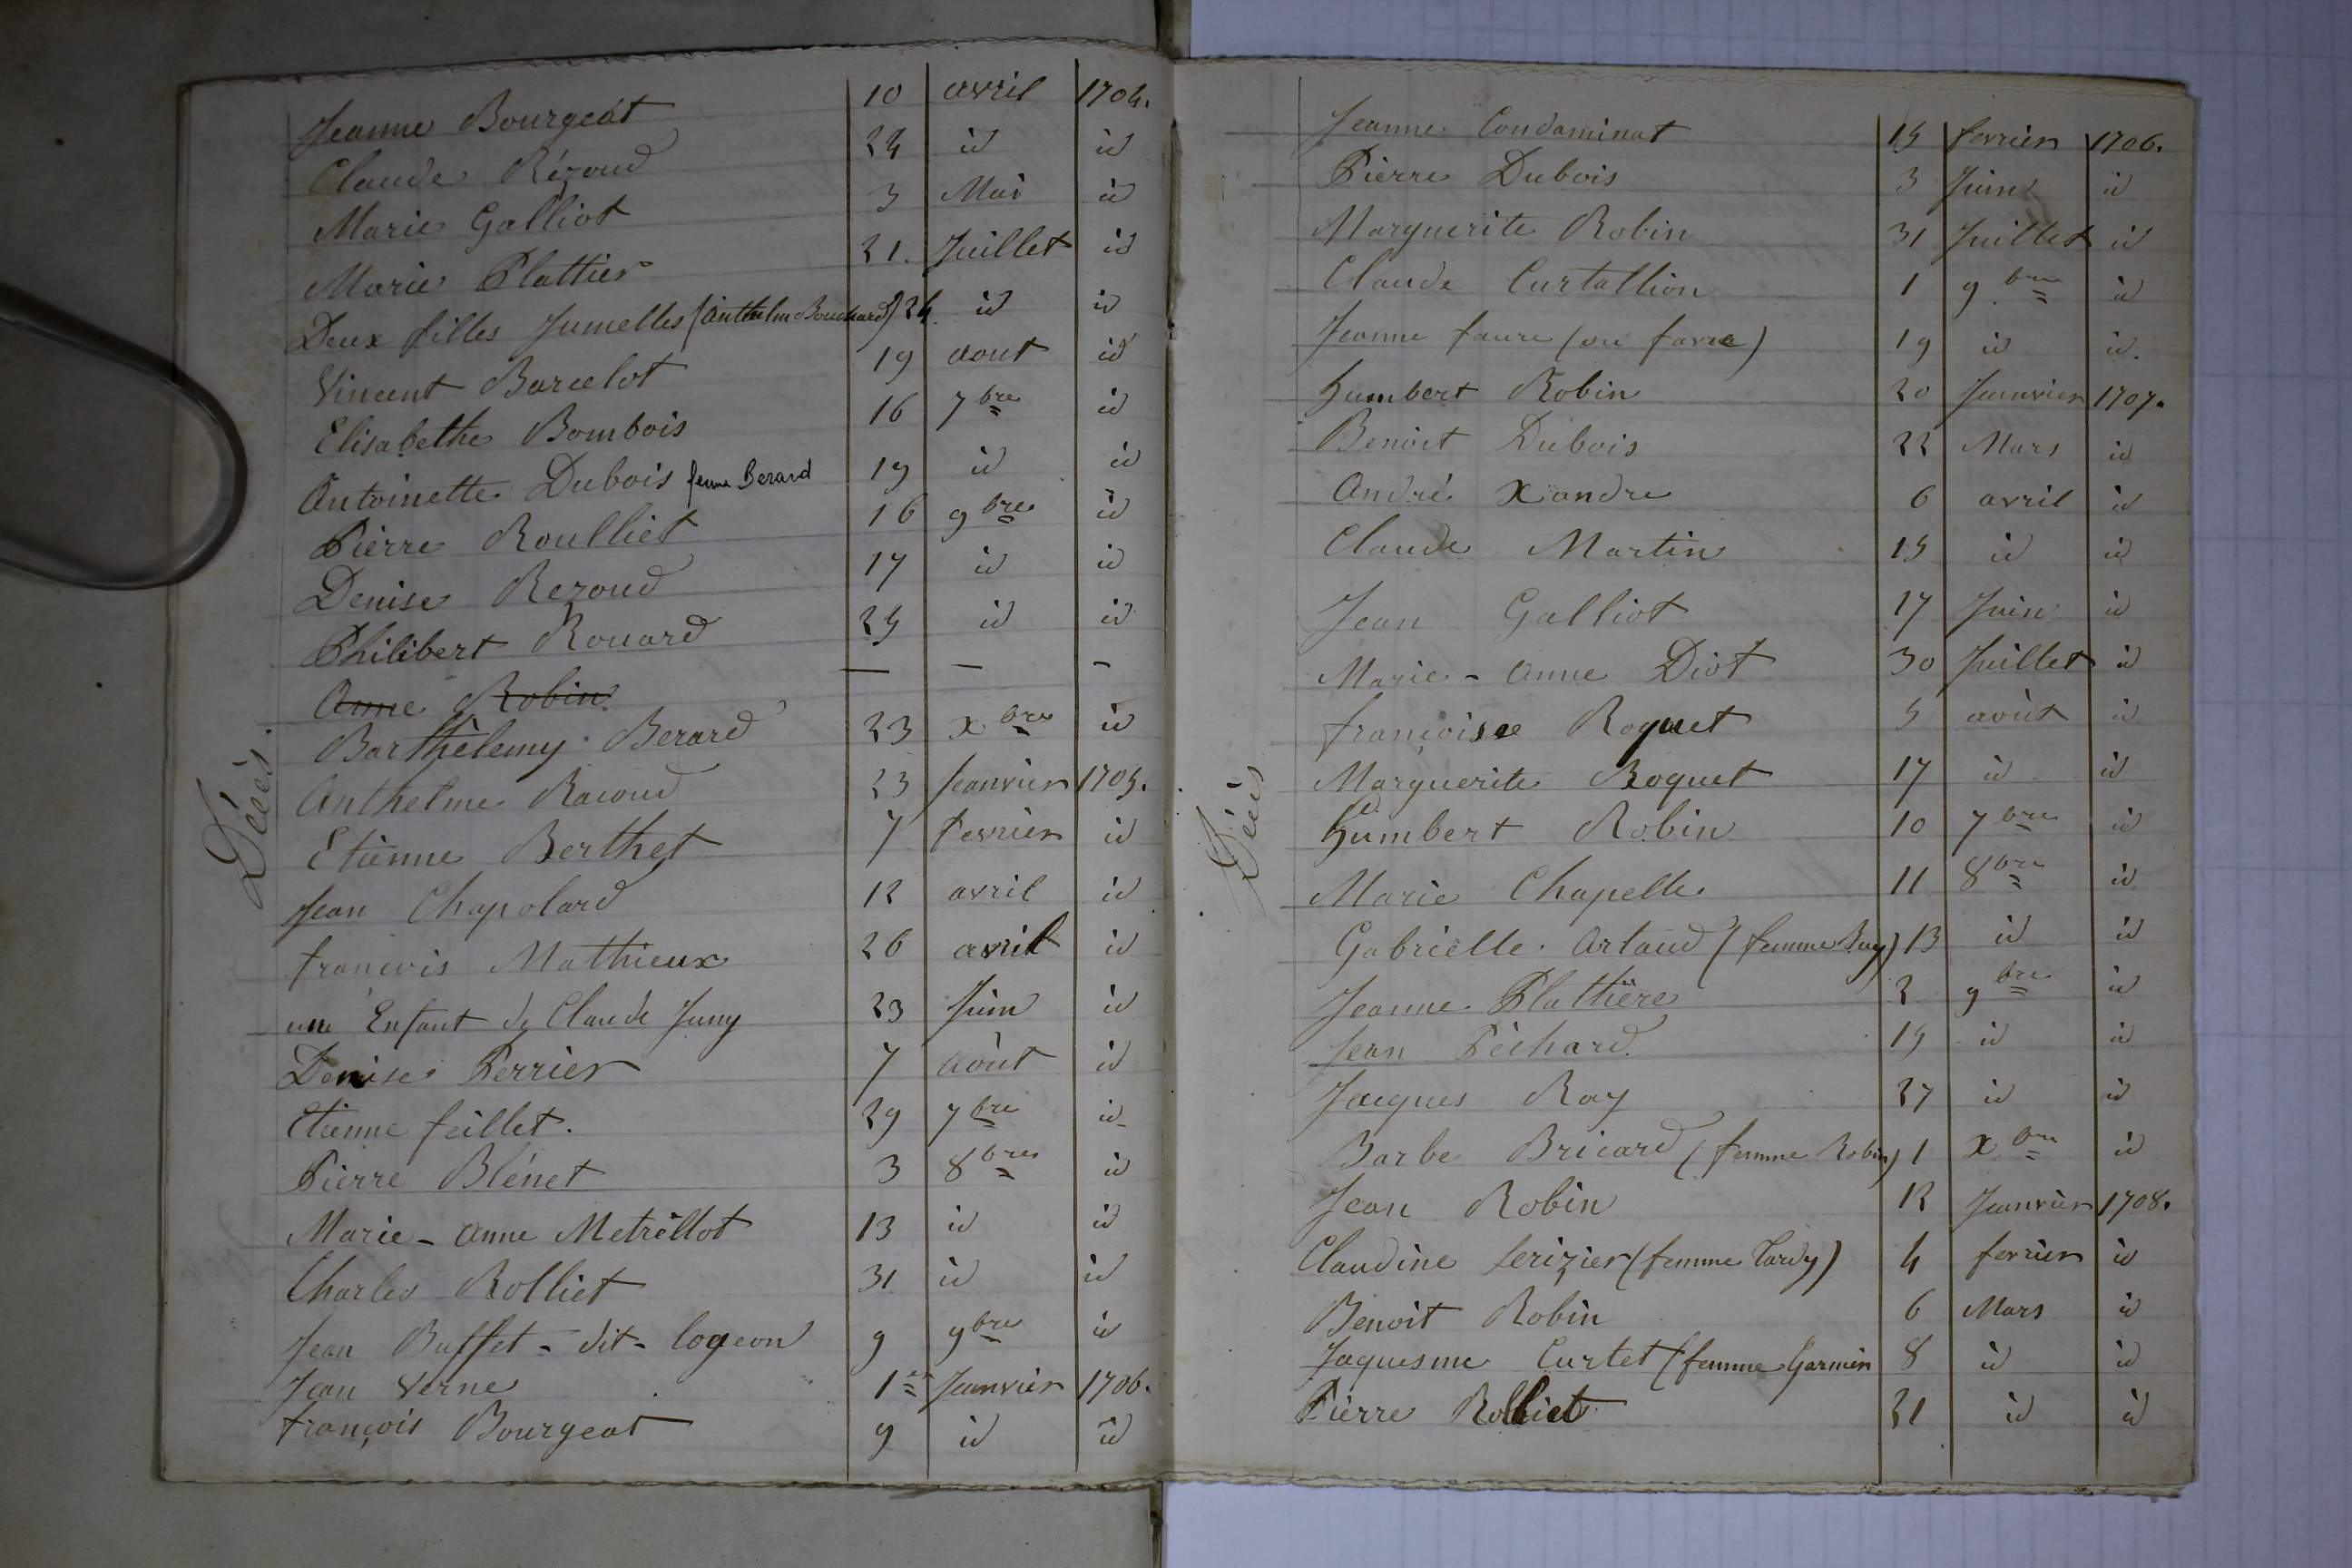 Jeanne Bourgeat 10 avril 1704.
Claude Rézoud 24 id id
Marie Galliot 3 Mai id
Marie Plattier 21. Juillet id
Deux filles Jumelles (Anthelme Bouchard) 24 id id
Vincent Barcelot 19 aout id
Elisabethe Bombois 16 7bre id
Antoinette Dubois femme Berard 19 id id
Pierre Roulliet 16 9bre id
Denise Rezoud 17 id id
Philibert Rouard 25 id id
Anne Robin — — —
Barthèlemy Berard 23 xbre id
Anthelme Racoud 23 Janvier 1705.
Etienne Berthet 7 fevrier id
Jean Chapolard 12 avril id
françois Mathieux 26 avril id
un Enfant de Claude Juny 23 Juin id
Denise Perrier 7 août id
Etienne feillet. 29 7bre id
Pierre Blénet 3 8bre id
Marie-Anne Metrillot 13 id id
Charles Rolliet 31 id id
Jean Buffet-dit-logeon 9 9bre id
Jean Verne 1er Janvier 1706.
françois Bourgeat 9 id id
Décès.
Jeanne Condaminat 15 fevrier 1706.
Pierre Dubois 3 Juin id
Marguerite Robin 31 Juillet id
Claude Curtallion 1 9bre id
Jeanne faure (ou favre) 19 id id.
humbert Robin 20 Janvier 1707.
Benoit Dubois 22 Mars id
André Xandre 6 avril id
Claude Martin 15 id id
Jean Galliot 17 Juin id
Marie-Anne Diot 30 Juillet id
françoise Roguet 5 août id
Marguerite Roguet 17 id id
humbert Robin 10 7bre id
Marie Chapelle 11 8bre id
Gabrielle Artaud (femme Buy) 13 id id
Jeanne Plattière 2 9bre id
Jean Péchard 15 id id
Jacques Ray 27 id id
Barbe Bricard (femme Robin) 1 xbre id
Jean Robin 12 Janvier 1708.
Claudine Serizier (femme Tardy) 4 fevrier id
Benoit Robin 6 Mars id
Jaquesme Curtet (femme Garnier 8 id id
Pierre Rolliet 21 id id
Décès